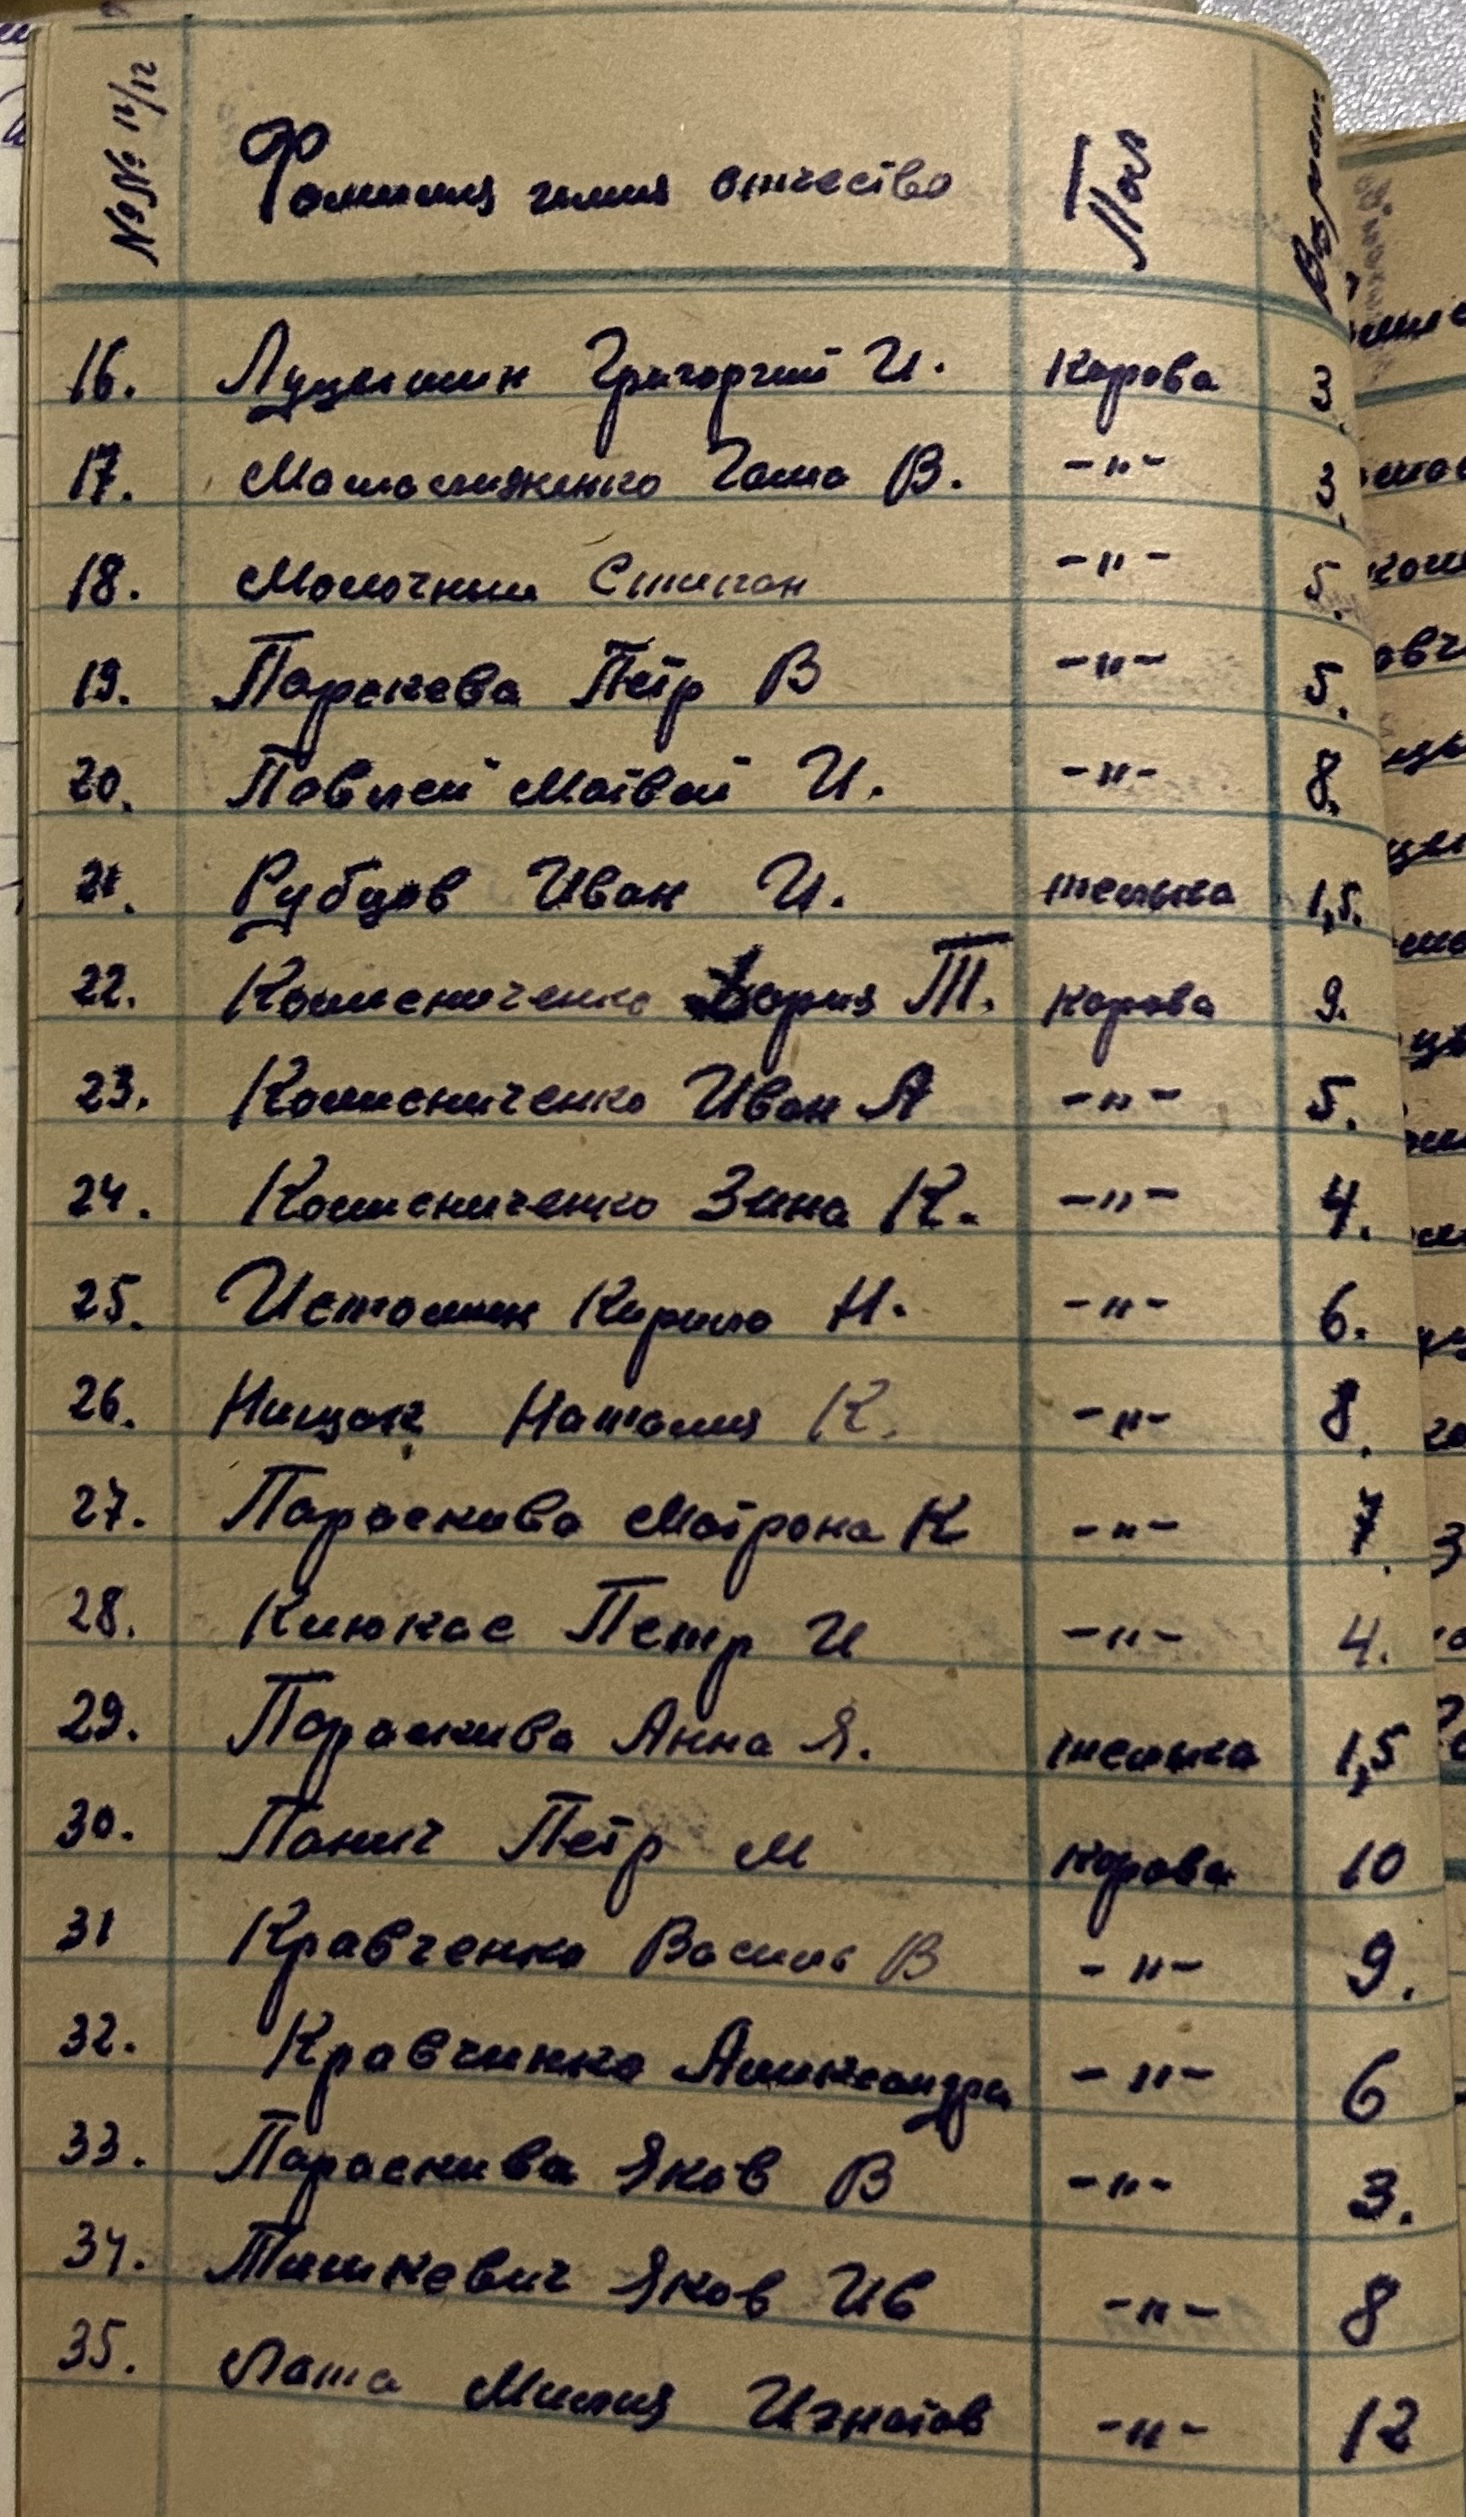 №№ п/п Фамилия имия отчество Пол Возраст
16. Луцышин Григорий И. Корова 3.
17. В. -"- 3.
18. Молочныи Стипан -"- 5.
19. Парскева Пётр В -"- 5.
20. Павлей Матвей И. -"- 8.
21. Рубцов Иван И. телыка 1,5.
22. Колисниченко Дария Т. Корова 9.
23. Колисниченко Иван А -"- 5.
24. Колисниченко Зина К. -"- 4.
25. Истомин Кирило Н. -"- 6.
26. Нищак Наталия К. -"- 8.
27. Параскива Матрона К -"- 7.
28. Киюкас Петр И -"- 4.
29. Параскива Анна Я. телыка 1,5
30. Панич Пётр М корова 10
31 Кравченко Василь В -"- 9.
32. Кравчинко Аликсандра -"- 6
33. Параскива Яков В -"- 3.
34. Тишкевич Яков Ив -"- 8
35. Лата Милия Игнатов -"- 12